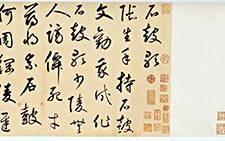 石鼓歌
張生手持石鼓
文勸我試作
石鼓歌少陵無
人謫仙死才
薄將奈石鼓
何周綱陵遲